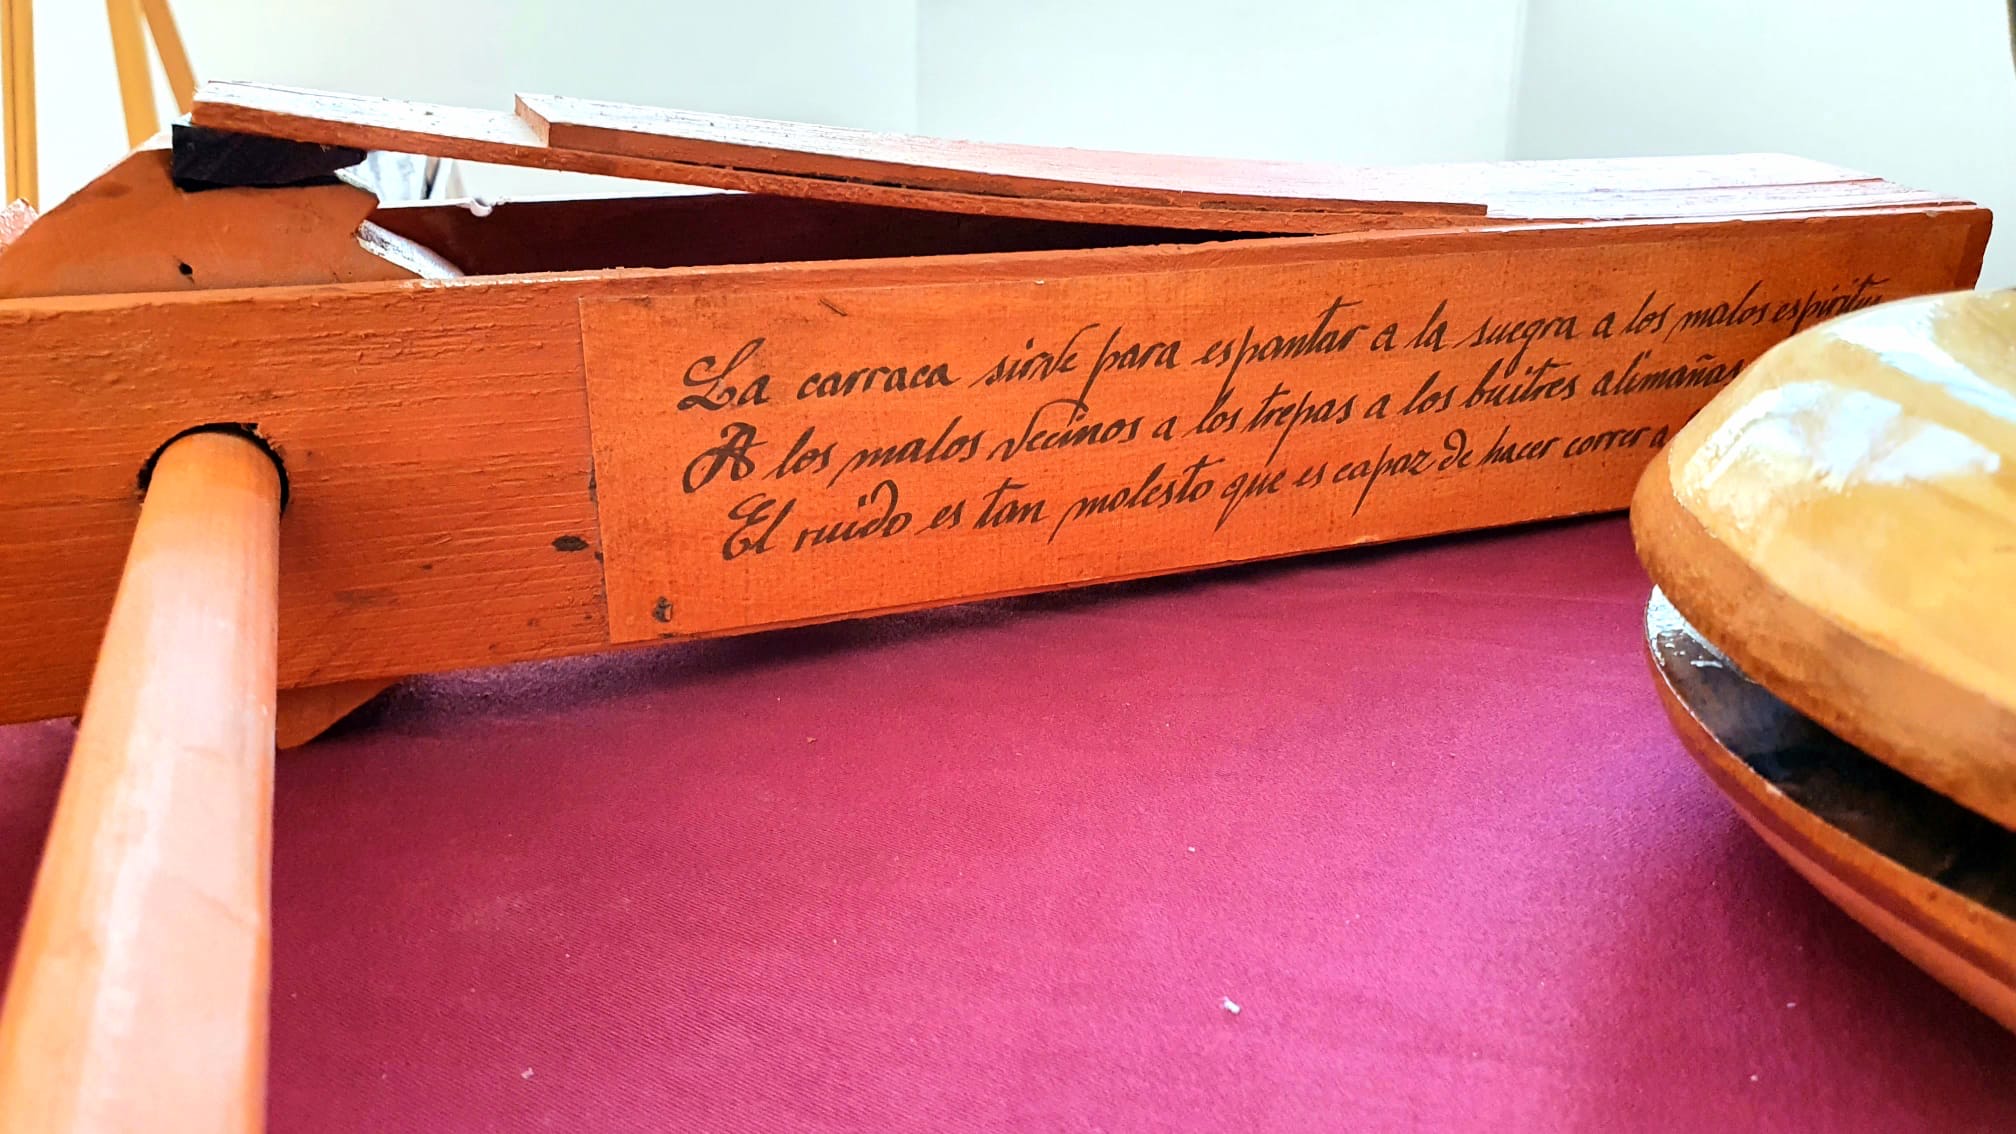 La carraca sirve para espantar a la suegra a los malos espiritus
A los malos vecinos a los trepas a los buitres alimañas
El ruido es tan molesto que es capaz de hacer correr a